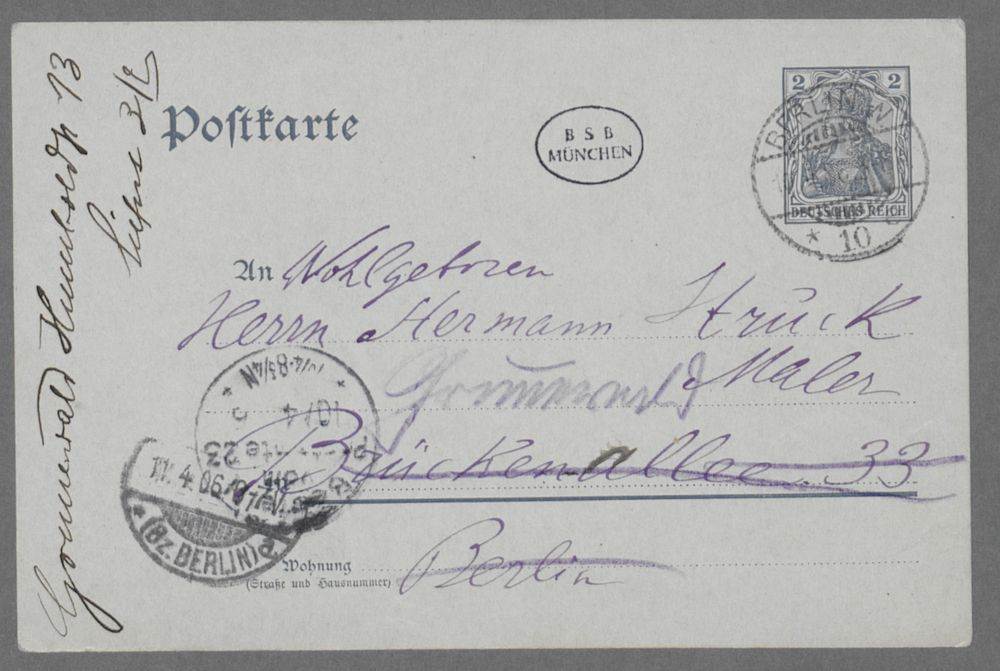 Postkarte
B S B
MÜNCHEN
2 2
BERLIN W.
DEUTSCHES REICH
* 10 c
An Wohlgeboren
Herrn Hermann Struck
Maler
Grunewald
Brückenallee 33
Berlin
Wohnung
(Straße und Hausnummer)
Grunewald Humboldtst 13
10/4
11. 4. 06
* (Bz. BERLIN) e